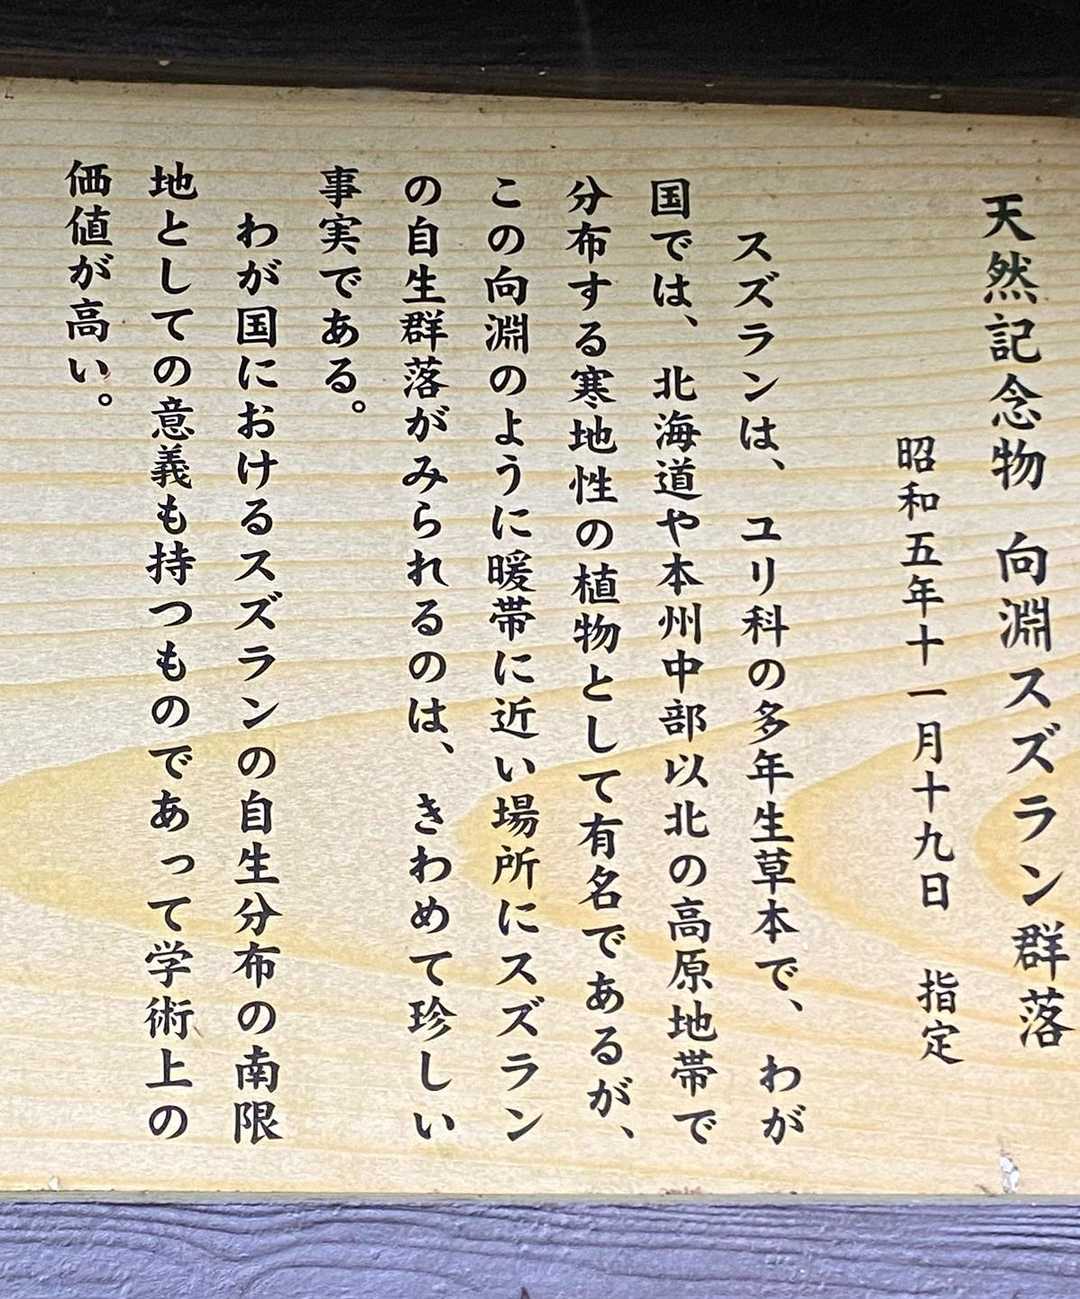 天然記念物 向淵スズラン群落
昭和五年十一月十九日 指定
スズランは、ユリ科の多年生草本で、わが
国では、北海道や本州中部以北の高原地帯で
分布する寒地性の植物として有名であるが、
この向淵のように暖帯に近い場所にスズラン
の自生群落がみられるのは、きわめて珍しい
事実である。
わが国におけるスズランの自生分布の南限
地としての意義も持つものであって学術上の
価値が高い。